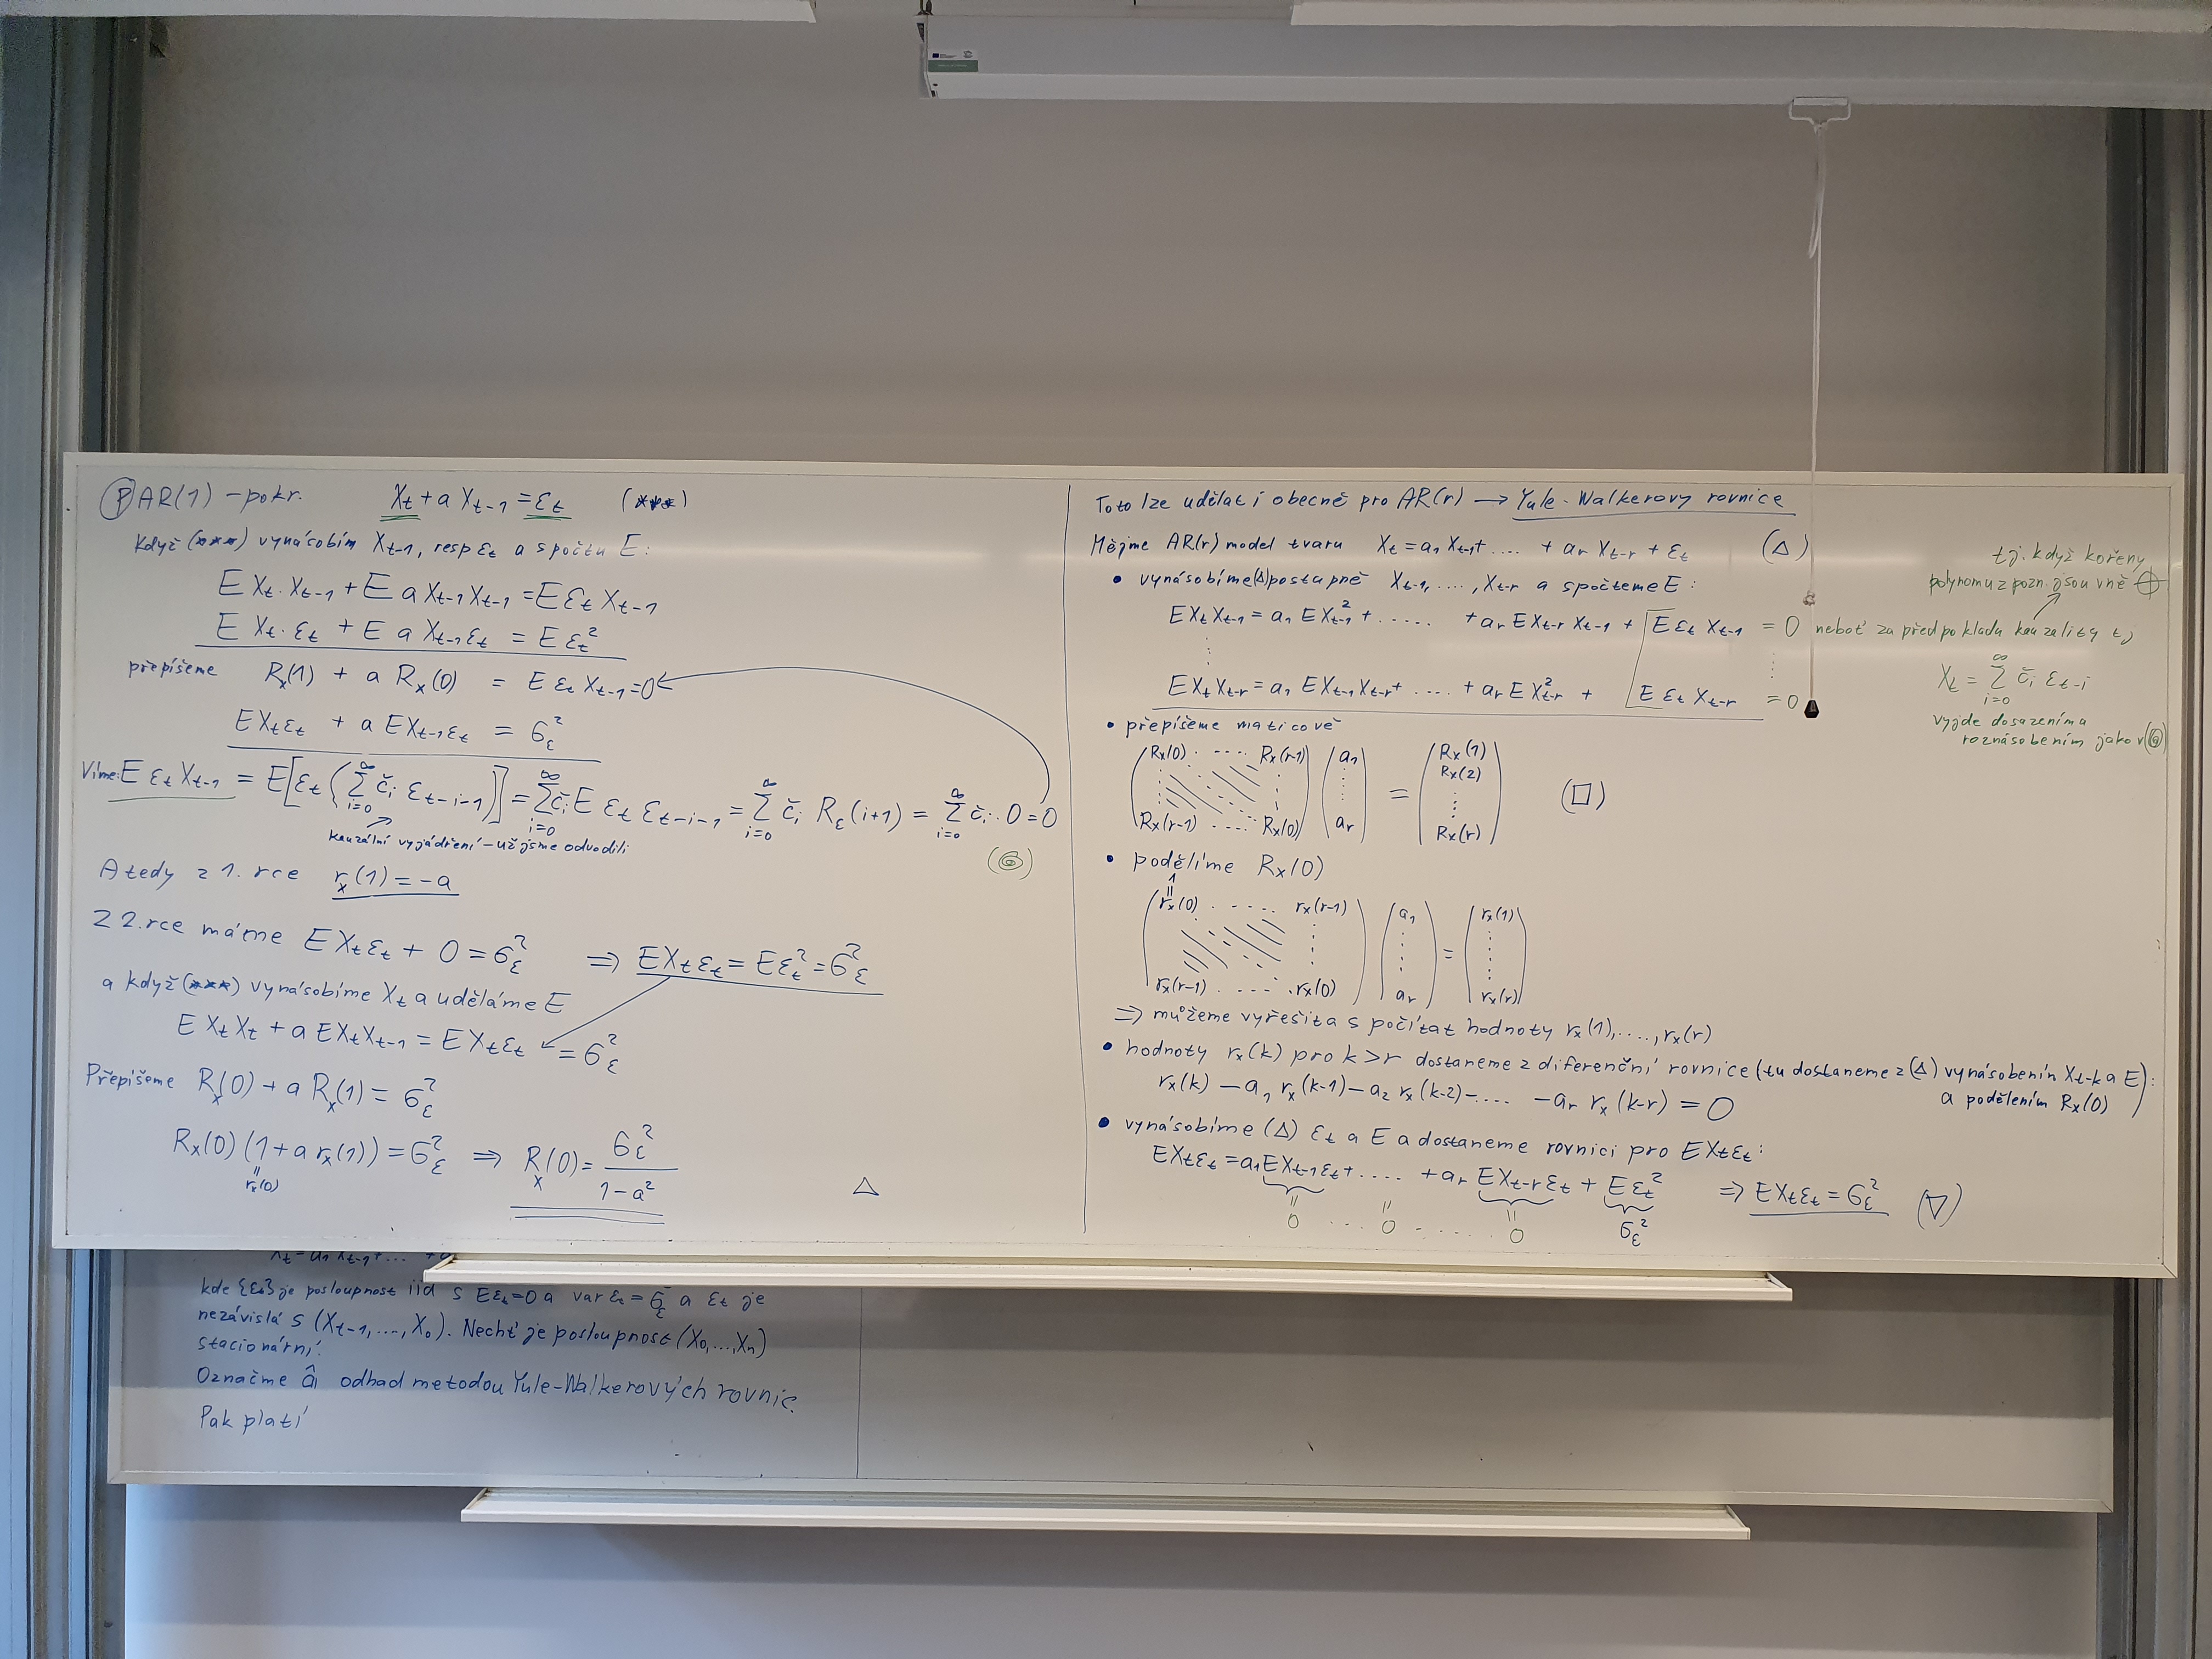 Ⓟ AR(1) – pokr. X_t + a X_{t-1} = ε_t (***)
Když (***) vynásobím X_{t-1}, resp ε_t a spočtu E:
E X_t·X_{t-1} + E a X_{t-1} X_{t-1} = E ε_t X_{t-1}
E X_t·ε_t + E a X_{t-1} ε_t = E ε_t²
přepíšeme R_X(1) + a R_X(0) = E ε_t X_{t-1} = 0
E X_t ε_t + a E X_{t-1} ε_t = σ_ε²
Víme: E ε_t X_{t-1} = E[ε_t (∑_{i=0}^∞ č_i ε_{t-i-1})] = ∑_{i=0}^∞ č_i E ε_t ε_{t-i-1} = ∑_{i=0}^∞ č_i R_ε(i+1) = ∑_{i=0}^∞ č_i · 0 = 0
kauzální vyjádření – už jsme odvodili
(◎)
A tedy z 1. rce r_X(1) = -a
Z 2. rce máme E X_t ε_t + 0 = σ_ε² ⇒ E X_t ε_t = E ε_t² = σ_ε²
a když (***) vynásobíme X_t a uděláme E
E X_t X_t + a E X_t X_{t-1} = E X_t ε_t = σ_ε²
Přepíšeme R_X(0) + a R_X(1) = σ_ε²
R_X(0) (1 + a r_X(1)) = σ_ε² ⇒ R_X(0) = σ_ε² / (1 - a²)
= r_X(0)
△
Toto lze udělat i obecně pro AR(r) → Yule-Walkerovy rovnice
Mějme AR(r) model tvaru X_t = a_1 X_{t-1} + .... + a_r X_{t-r} + ε_t (△)
• vynásobíme (△) postupně X_{t-1}, ...., X_{t-r} a spočteme E:
E X_t X_{t-1} = a_1 E X_{t-1}² + ...... + a_r E X_{t-r} X_{t-1} + E ε_t X_{t-1} = 0 neboť za předpokladu kauzality tj
⋮
E X_t X_{t-r} = a_1 E X_{t-1} X_{t-r} + .... + a_r E X_{t-r}² + E ε_t X_{t-r} = 0
tj. když kořeny
polynomu z pozn. jsou vně ⊕
X_t = ∑_{i=0}^∞ č_i ε_{t-i}
vyjde dosazením a
roznásobením jako v (◎)
• přepíšeme maticově
R_X(0) ..... R_X(r-1) a_1 R_X(1)
R_X(2)
= (□)
R_X(r-1) ..... R_X(0) a_r R_X(r)
• podělíme R_X(0)
1 =
r_X(0) ..... r_X(r-1) a_1 r_X(1)
=
r_X(r-1) ..... r_X(0) a_r r_X(r)
⇒ můžeme vyřešit a spočítat hodnoty r_X(1), ...., r_X(r)
• hodnoty r_X(k) pro k > r dostaneme z diferenční rovnice (tu dostaneme z (△) vynásobením X_{t-k} a E):
a podělením R_X(0))
r_X(k) - a_1 r_X(k-1) - a_2 r_X(k-2) - .... - a_r r_X(k-r) = 0
• vynásobíme (△) ε_t a E a dostaneme rovnici pro E X_t ε_t:
E X_t ε_t = a_1 E X_{t-1} ε_t + .... + a_r E X_{t-r} ε_t + E ε_t² ⇒ E X_t ε_t = σ_ε² (▽)
0 ... 0 .... 0 σ_ε²
X_t = a_1 X_{t-1} + ...
kde {ε_t} je posloupnost iid s E ε_t = 0 a var ε_t = σ_ε² a ε_t je
nezávislá s (X_{t-1}, ..., X_0). Nechť je posloupnost (X_0, ..., X_n)
stacionární.
Označme â odhad metodou Yule-Walkerových rovnic.
Pak platí